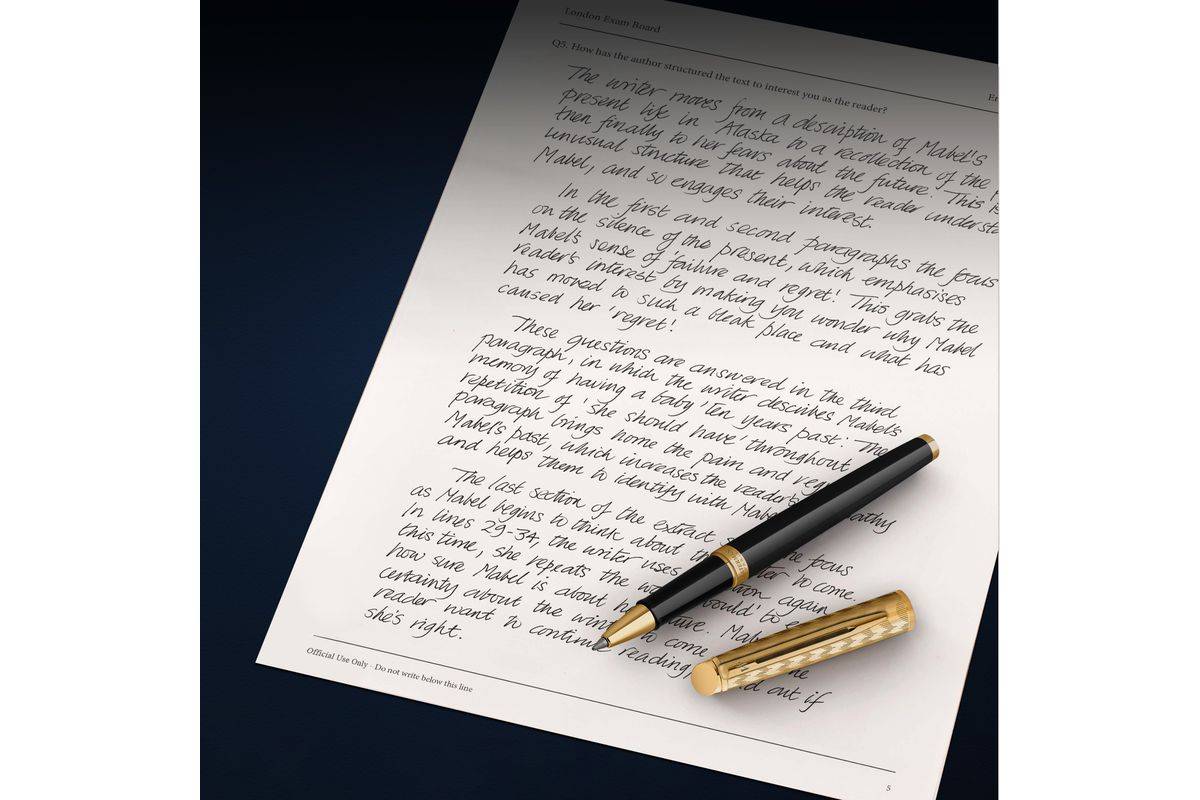 London Exam Board
Q5. How has the author structured the text to interest you as the reader?
The writer moves from a description of Mabel's
present life in Alaska to a recollection of the
then finally to her fears about the future. This is
unusual structure that helps the reader
Mabel, and so engages their interest.
In the first and second paragraphs the focus
on the silence of the present, which emphasises
Mabel's sense of 'failure and regret'. This grabs the
reader's interest by making you wonder why Mabel
has moved to such a bleak place and what has
caused her 'regret'.
These questions are answered in the third
paragraph, in which the writer describes Mabel's
memory of having a baby 'ten years past'. The
repetition of 'she should have' throughout
paragraph brings home the pain and
Mabel's past, which increases the reader's
and helps them to identify with
The last section of the extract focus
as Mabel begins to think about to come.
In lines 29-34, the writer uses again
this time, she repeats the to
how sure Mabel is about
certainty about the to come
reader want to continue reading, out if
she's right.
Official Use Only - Do not write below this line
5